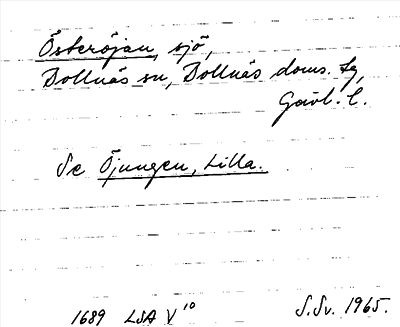 Österöjan, sjö,
Bollnäs sn, Bollnäs doms. tg,
Gävl. l.
Se Öjungen, Lilla.
1689 LSA V 10 S.Sv. 1965.